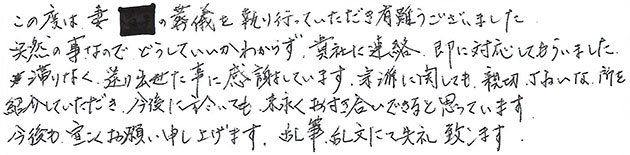 この度は妻 の葬儀を執り行っていただき有難うございました
突然の事なので、どうしていいかわからず、貴社に連絡、即に対応してもらいました。
滞りなく、送り出せた事に感謝しています。宗派に関しても、親切、ていねいな、所を
紹介していただき、今後に於いても、末永くお付き合いできると思っています
今後も、宜しくお願い申し上げます。乱筆、乱文にて失礼致します.